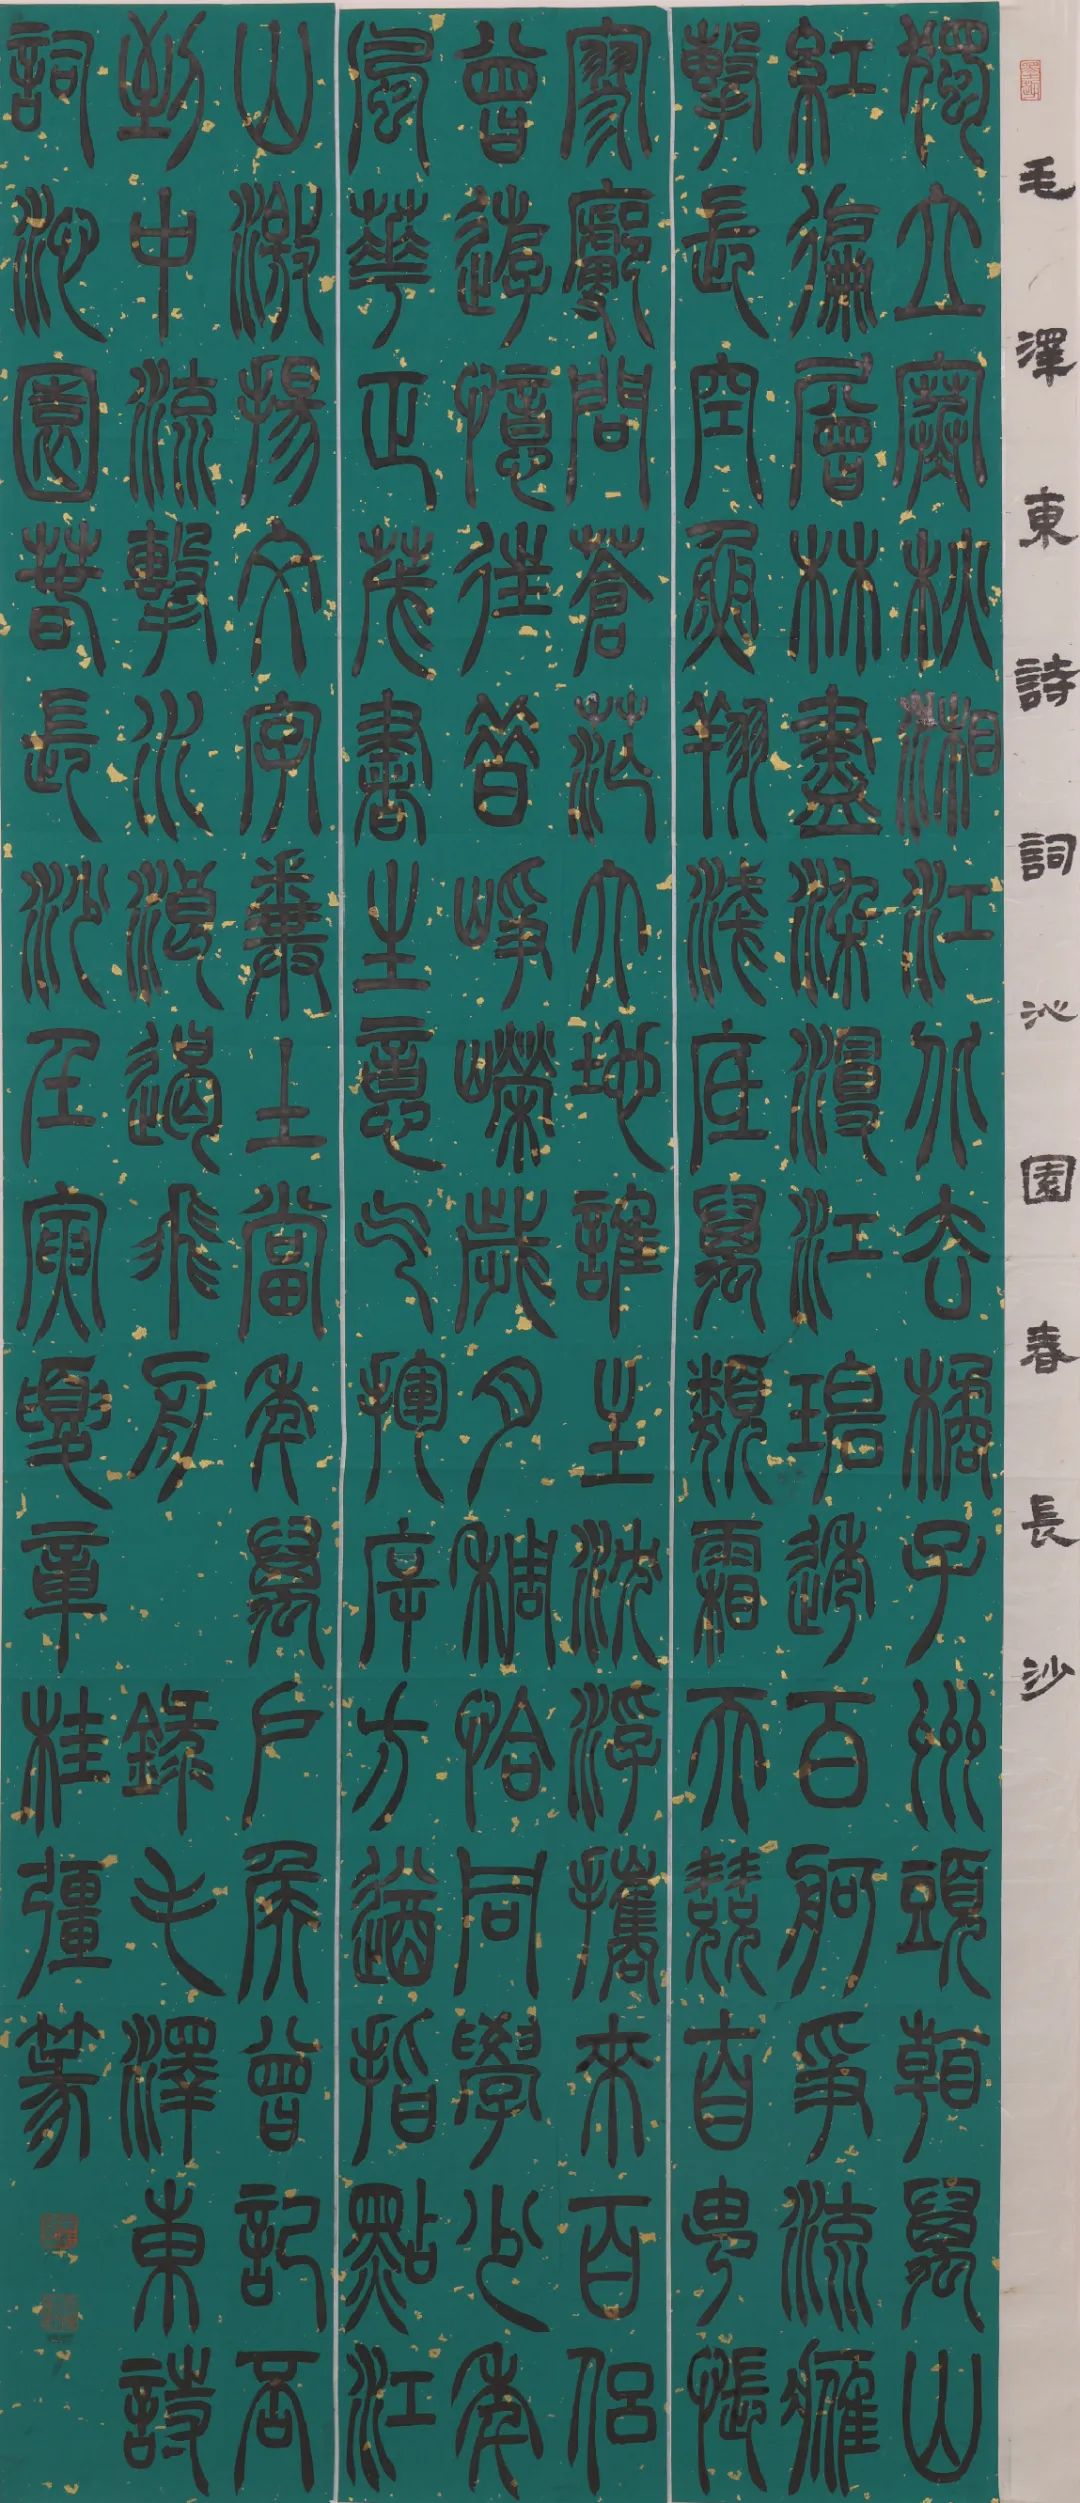 毛澤東詩詞沁園春長沙
獨立寒秋湘江北去橘子州頭看萬山
紅徧層林盡染漫江碧透百舸爭流鷹
擊長空魚翔淺底萬類霜天競自由悵
寥廓問蒼茫大地誰主沈浮攜來百侶
曾遊憶往昔崢嶸歲月稠恰同學少年
風華正茂書生意气揮斥方遒指點江
山激揚文字糞土當年萬戶侯曾記否
到中流擊水浪遏飛舟 錄毛澤東詩
詞沁園春長沙壬寅夏章桂彊篆